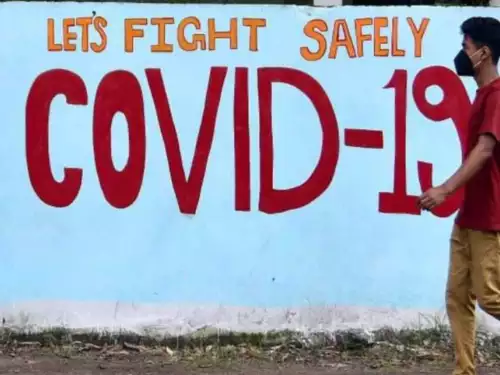 LET'S FIGHT SAFELY
COVID-19